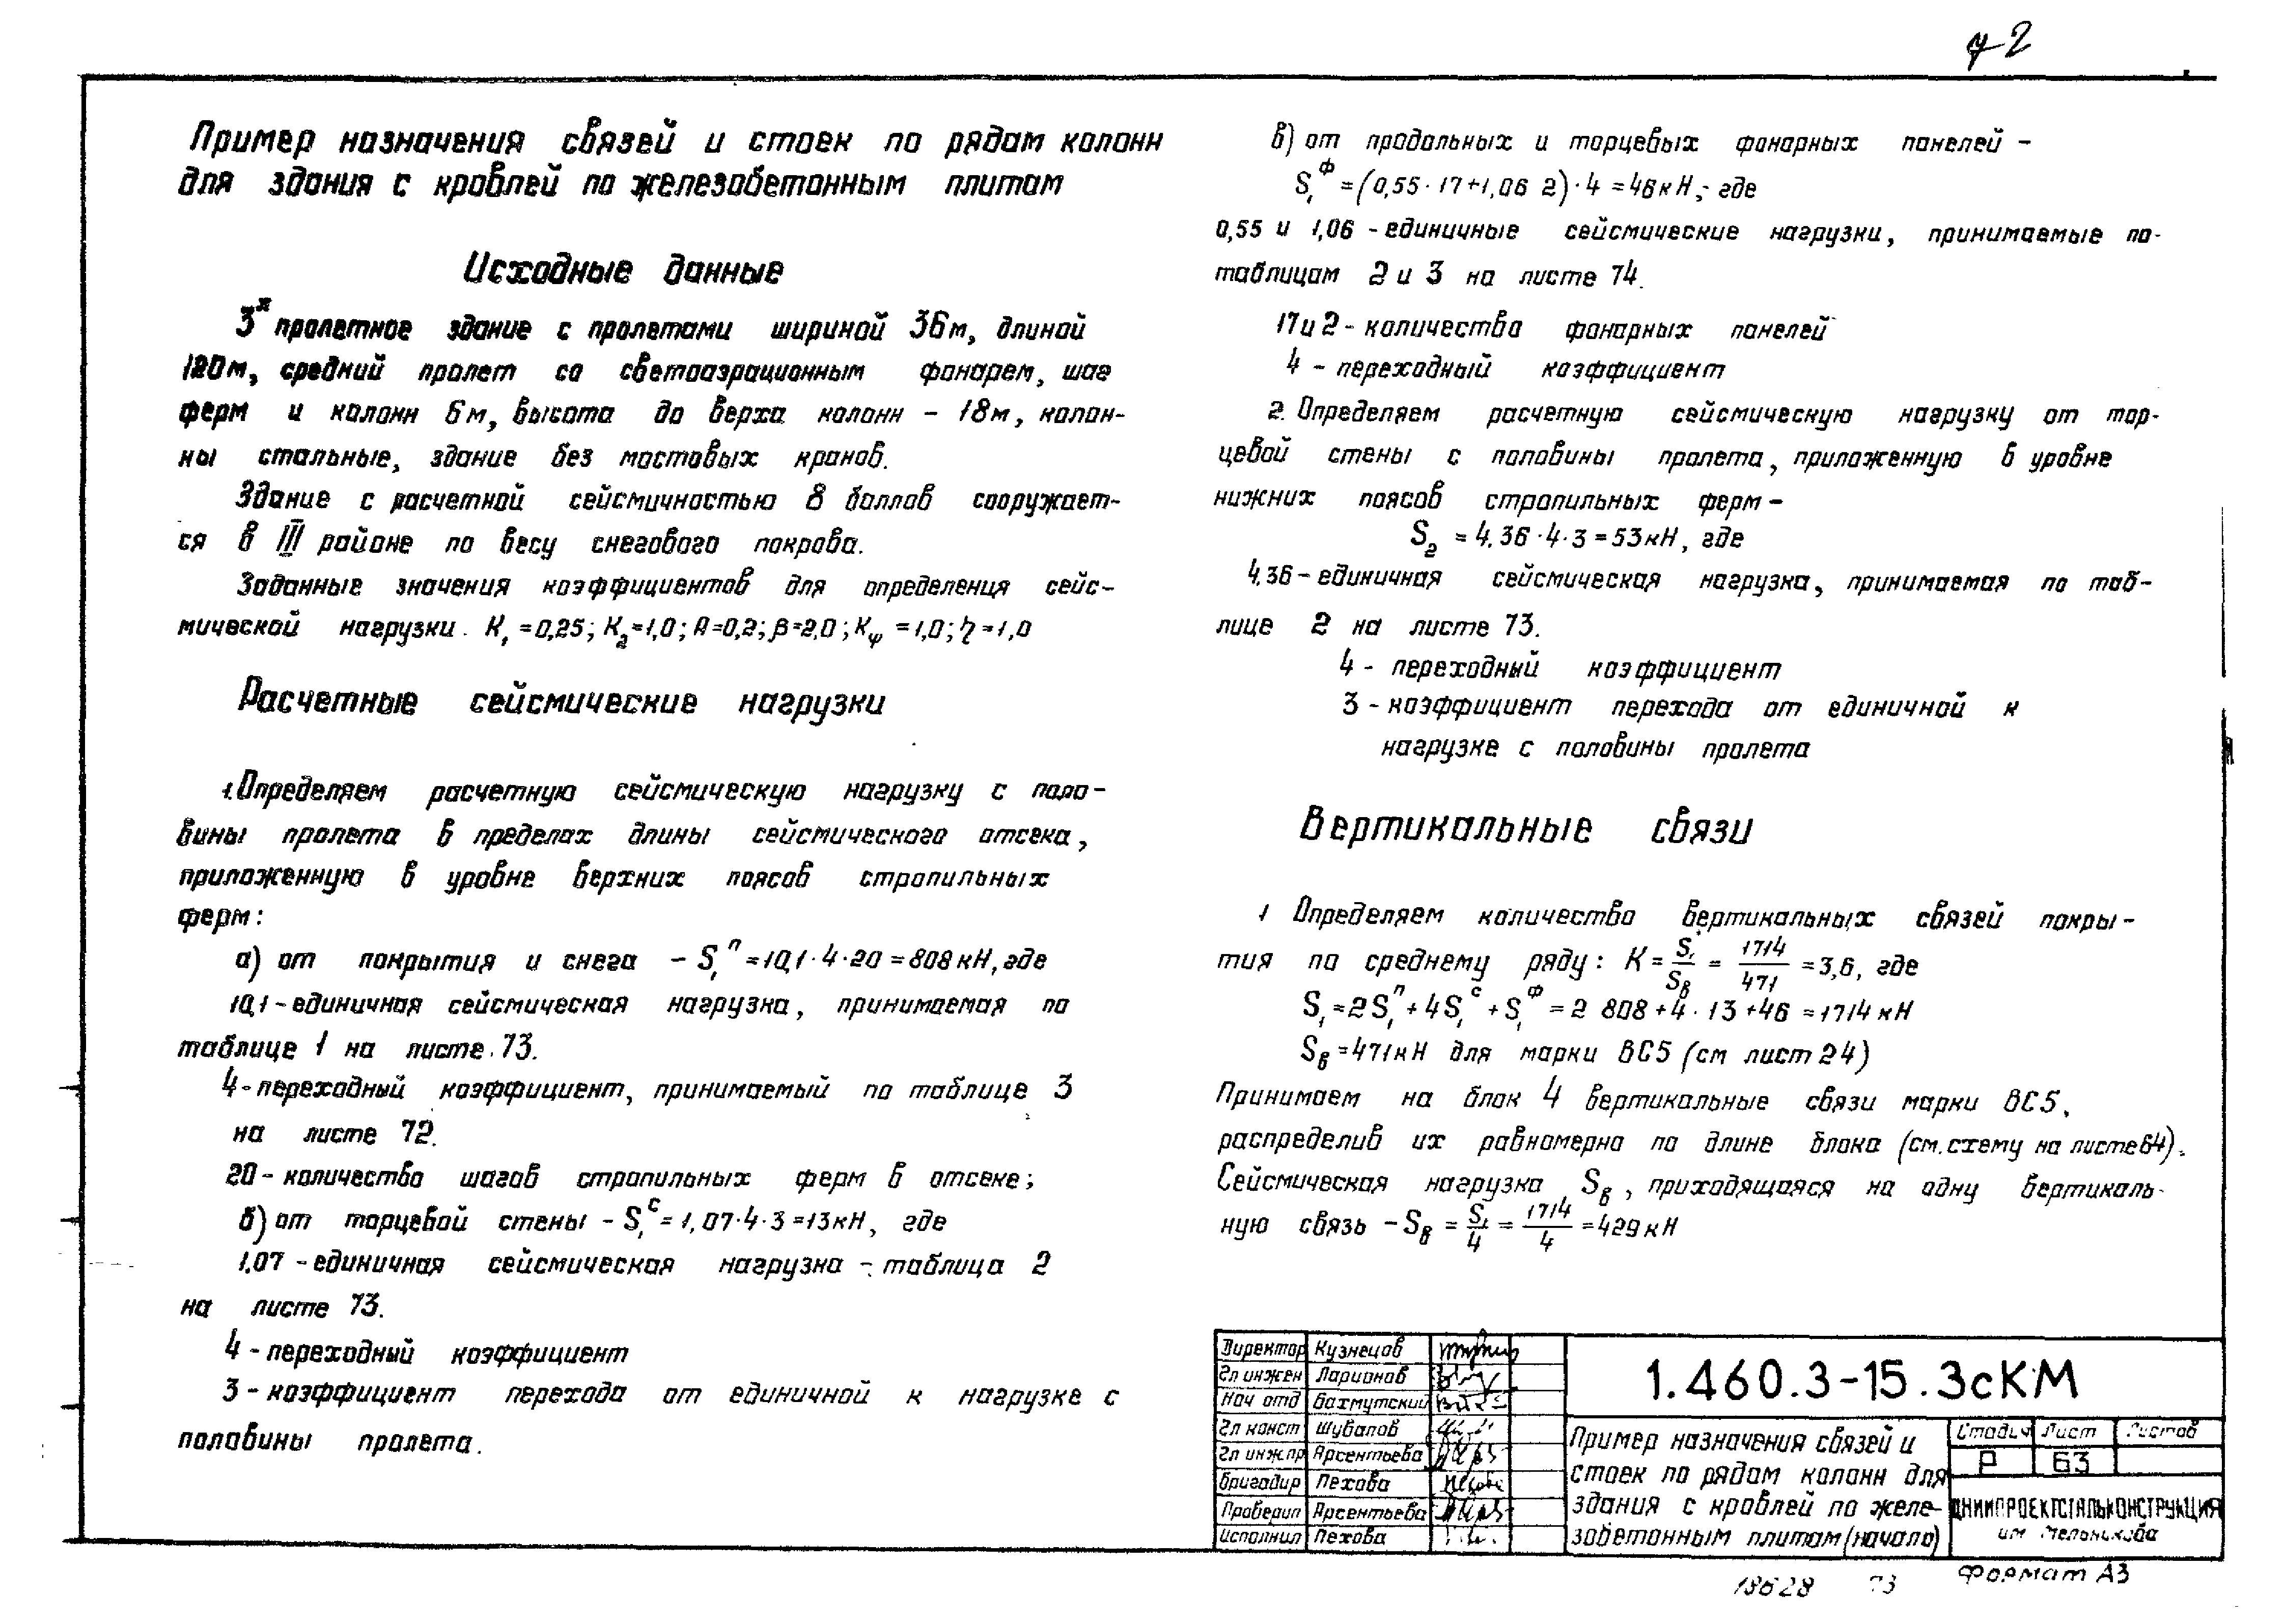 72
Пример назначения связей и стоек по рядам колонн
для здания с кровлей по железобетонным плитам
Исходные данные
3х пролетное здание с пролетами шириной 36м, длиной
120м, средний пролет со светоаэрационным фонарем, шаг
ферм и колонн 6м, высота до верха колонн - 18м, колон-
ны стальные, здание без мостовых кранов.
Здание с расчетной сейсмичностью 8 баллов сооружает-
ся в III районе по весу снегового покрова.
Заданные значения коэффициентов для определения сейс-
мической нагрузки. K₁=0,25; K₂=1,0; A=0,2; β=2,0; Kψ=1,0; η=1,0
Расчетные сейсмические нагрузки
1. Определяем расчетную сейсмическую нагрузку с поло-
вины пролета в пределах длины сейсмического отсека,
приложенную в уровне верхних поясов стропильных
ферм:
а) от покрытия и снега - S₁ᴨ=10,1·4·20=808кН, где
10,1-единичная сейсмическая нагрузка, принимаемая по
таблице 1 на листе 73.
4-переходный коэффициент, принимаемый по таблице 3
на листе 72.
20-количество шагов стропильных ферм в отсеке;
б) от торцевой стены - S₁ᶜ=1,07·4·3=13кН, где
1,07 - единичная сейсмическая нагрузка - таблица 2
на листе 73.
4 - переходный коэффициент
3 - коэффициент перехода от единичной к нагрузке с
половины пролета.
в) от продольных и торцевых фонарных панелей -
S₁ᶲ=(0,55·17+1,06 2)·4=46кН; где
0,55 и 1,06 - единичные сейсмические нагрузки, принимаемые по-
таблицам 2 и 3 на листе 74.
17 и 2 - количество фонарных панелей
4 - переходный коэффициент
2. Определяем расчетную сейсмическую нагрузку от тор-
цевой стены с половины пролета, приложенную в уровне
нижних поясов стропильных ферм -
S₂ =4,36·4·3=53кН, где
4,36-единичная сейсмическая нагрузка, принимаемая по таб-
лице 2 на листе 73.
4 - переходный коэффициент
3 - коэффициент перехода от единичной к
нагрузке с половины пролета
Вертикальные связи
1 Определяем количество вертикальных связей покры-
тия по среднему ряду: K = S₁/Sв = 1714/471 = 3,6, где
S₁=2S₁ᴨ+4S₁ᶜ+S₁ᶲ=2 808+4·13+46=1714кН
Sв=471кН для марки ВС5 (см лист 24)
Принимаем на блок 4 вертикальные связи марки ВС5,
распределив их равномерно по длине блока (см. схему на листе 64).
Сейсмическая нагрузка Sв, приходящаяся на одну вертикаль-
ную связь - Sв = S₁/4 = 1714/4 = 429кН
Директор Кузнецов
Гл инжен Ларионов
Нач отд Бахмутский
Гл конст Шувалов
Гл инж.пр Арсентьева
Бригадир Пехова
Проверил Арсентьева
Исполнил Пехова
1.460.3-15.3сКМ
Пример назначения связей и
стоек по рядам колонн для
здания с кровлей по желе-
зобетонным плитам (начало)
Стадия Лист Листов
Р 63
ЦНИИПРОЕКТСТАЛЬКОНСТРУКЦИЯ
им Мельникова
18628 73
Формат А3